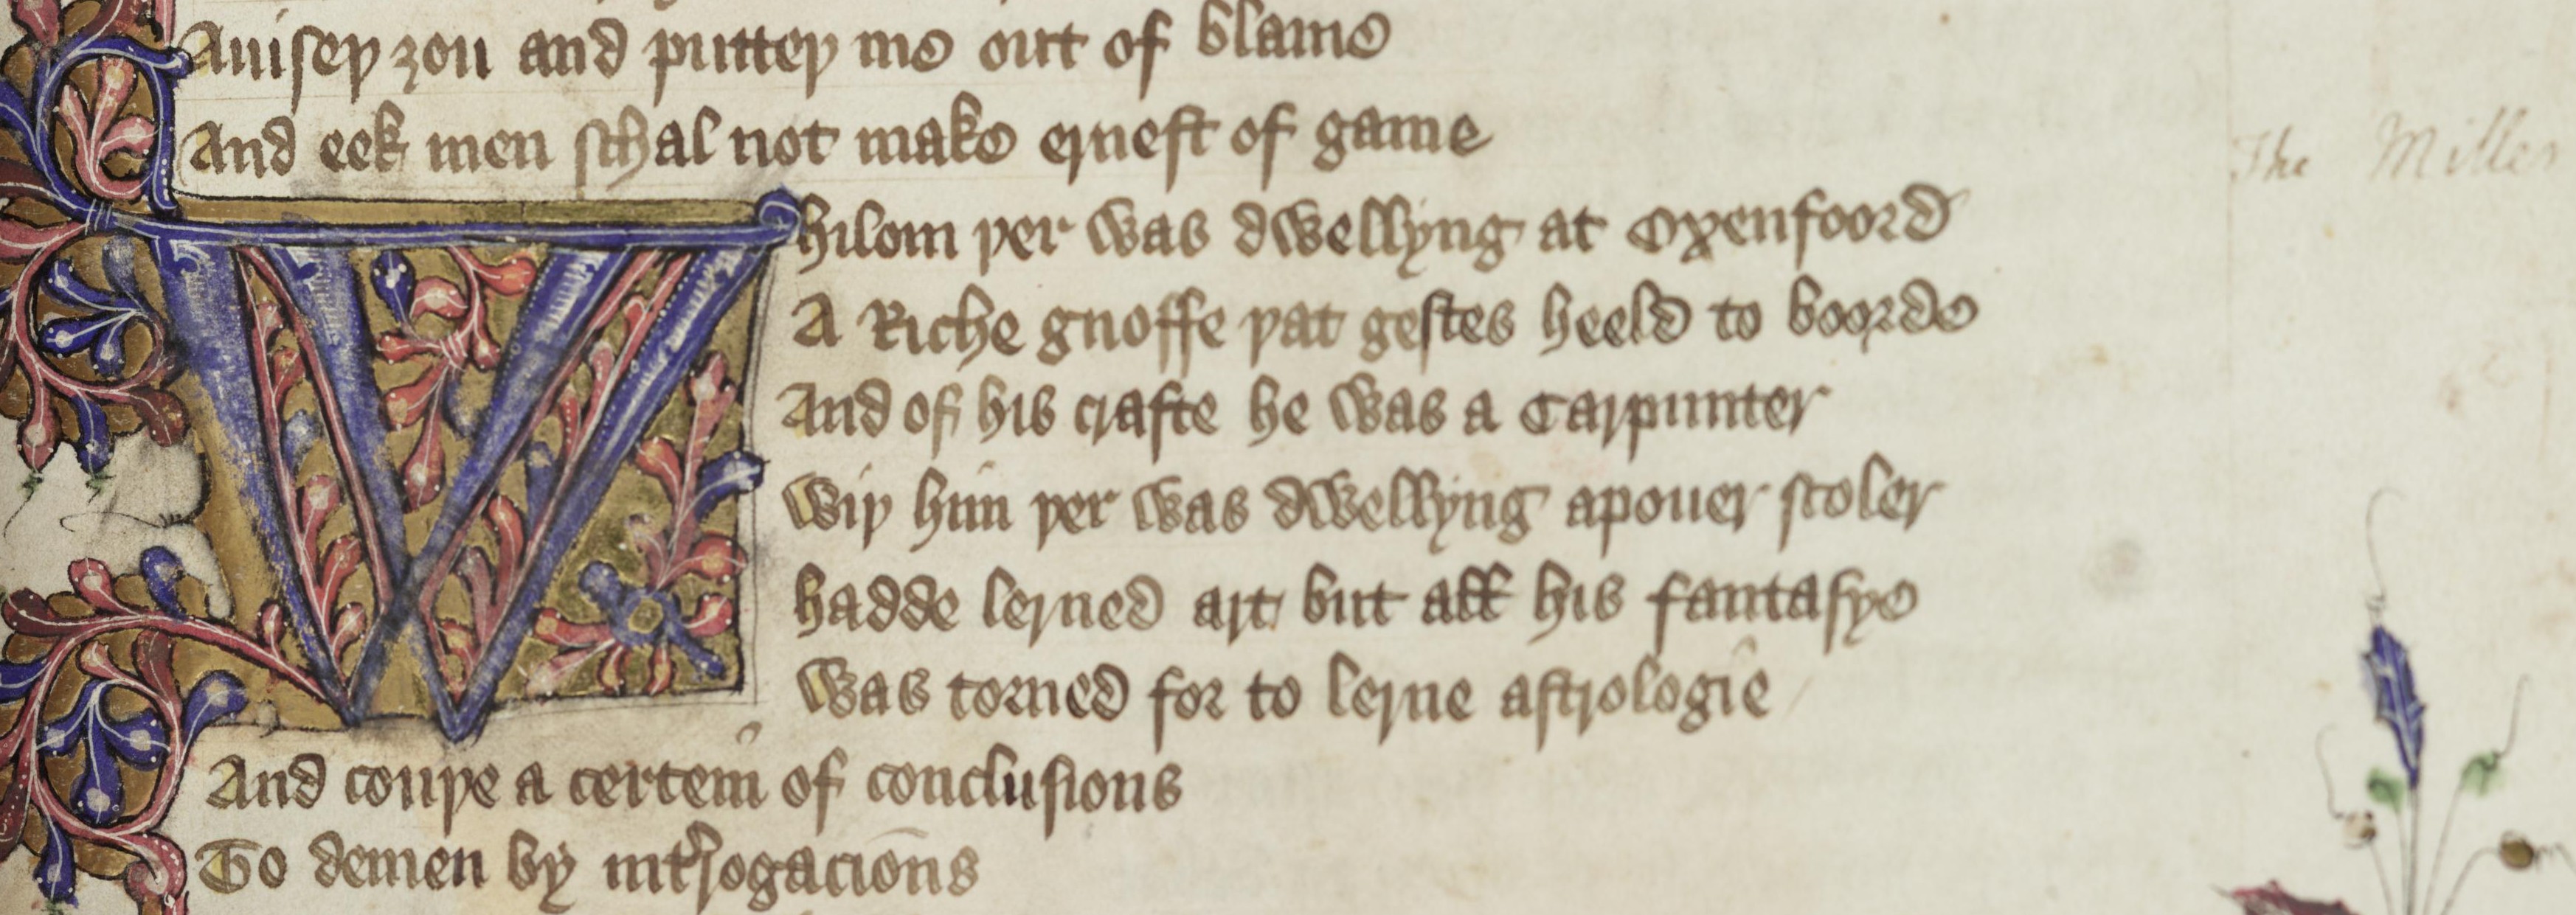 Auiseþ ȝou and putteþ me out of blame
And eek men schal not make ernest of game
The Miller
Whilom þer was dwellyng at Oxenfoord
A Riche gnoffe þat gestes heeld to boorde
And of his crafte he was a Carpunter
Wiþ him þer was dwellyng apouer scoler
hadde lerned art but all his fantasye
was torned for to lerne astrologie
And couþe a certein of conclusions
To demen by introgacions